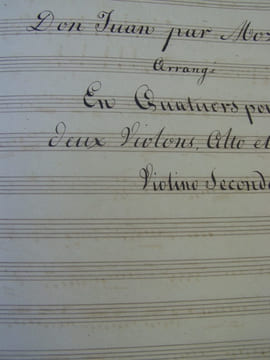 Don Juan par Moz
Arrangé
En Quatuors pou
deux Violons, Alto et
Violino Secondo